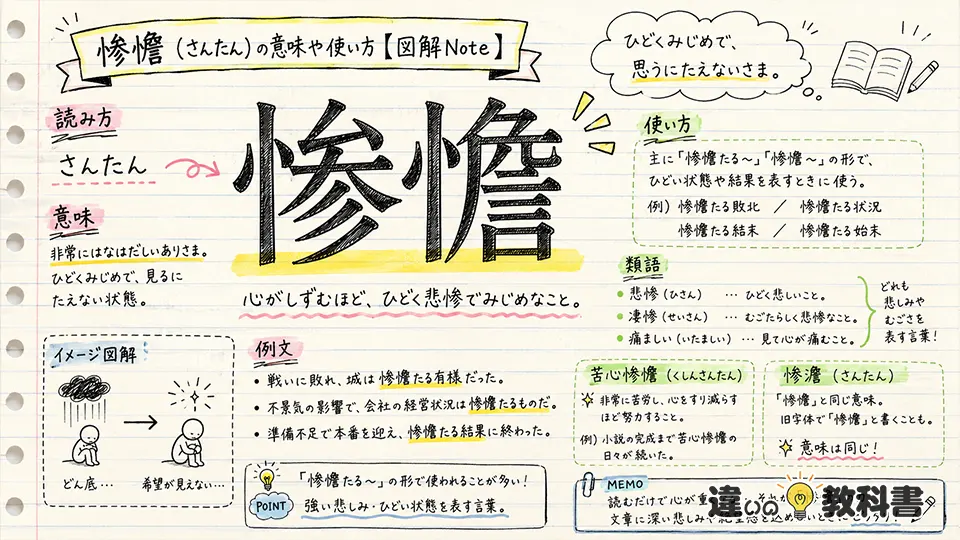 惨憺（さんたん）の意味や使い方【図解Note】
ひどくみじめで、
思うにたえないさま。
読み方
さんたん
惨憺
意味
非常にはなはだしいありさま。
ひどくみじめで、見るに
たえない状態。
心がしずむほど、ひどく悲惨でみじめなこと。
使い方
主に「惨憺たる～」「惨憺～」の形で、
ひどい状態や結果を表すときに使う。
例）惨憺たる敗北 ／ 惨憺たる状況
惨憺たる結末 ／ 惨憺たる始末
類語
・悲惨（ひさん） … ひどく悲しいこと。
・凄惨（せいさん） … むごたらしく悲惨なこと。
・痛ましい（いたましい） … 見て心が痛むこと。
どれも
悲しみや
むごさを
表す言葉！
イメージ図解
どん底…
希望が見えない…
例文
・戦いに敗れ、城は惨憺たる有様だった。
・不景気の影響で、会社の経営状況は惨憺たるものだ。
・準備不足で本番を迎え、惨憺たる結果に終わった。
POINT
「惨憺たる～」の形で使われることが多い！
強い悲しみ・ひどい状態を表す言葉。
苦心惨憺（くしんさんたん）
非常に苦労し、心をすり減らす
ほど努力すること。
例）小説の完成まで苦心惨憺の
日々が続いた。
惨澹（さんたん）
「惨憺」と同じ意味。
旧字体で「惨憺」と書くことも。
意味は同じ！
MEMO
読むだけで心が重
文章に深い悲しみや
違いの教科書